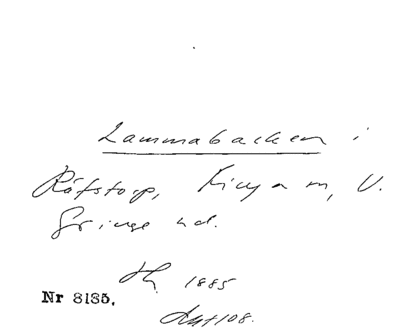 Lammabacken i
Röfstorp, Kinga m, V.
Göinge hd.
1885
Nr 8185.